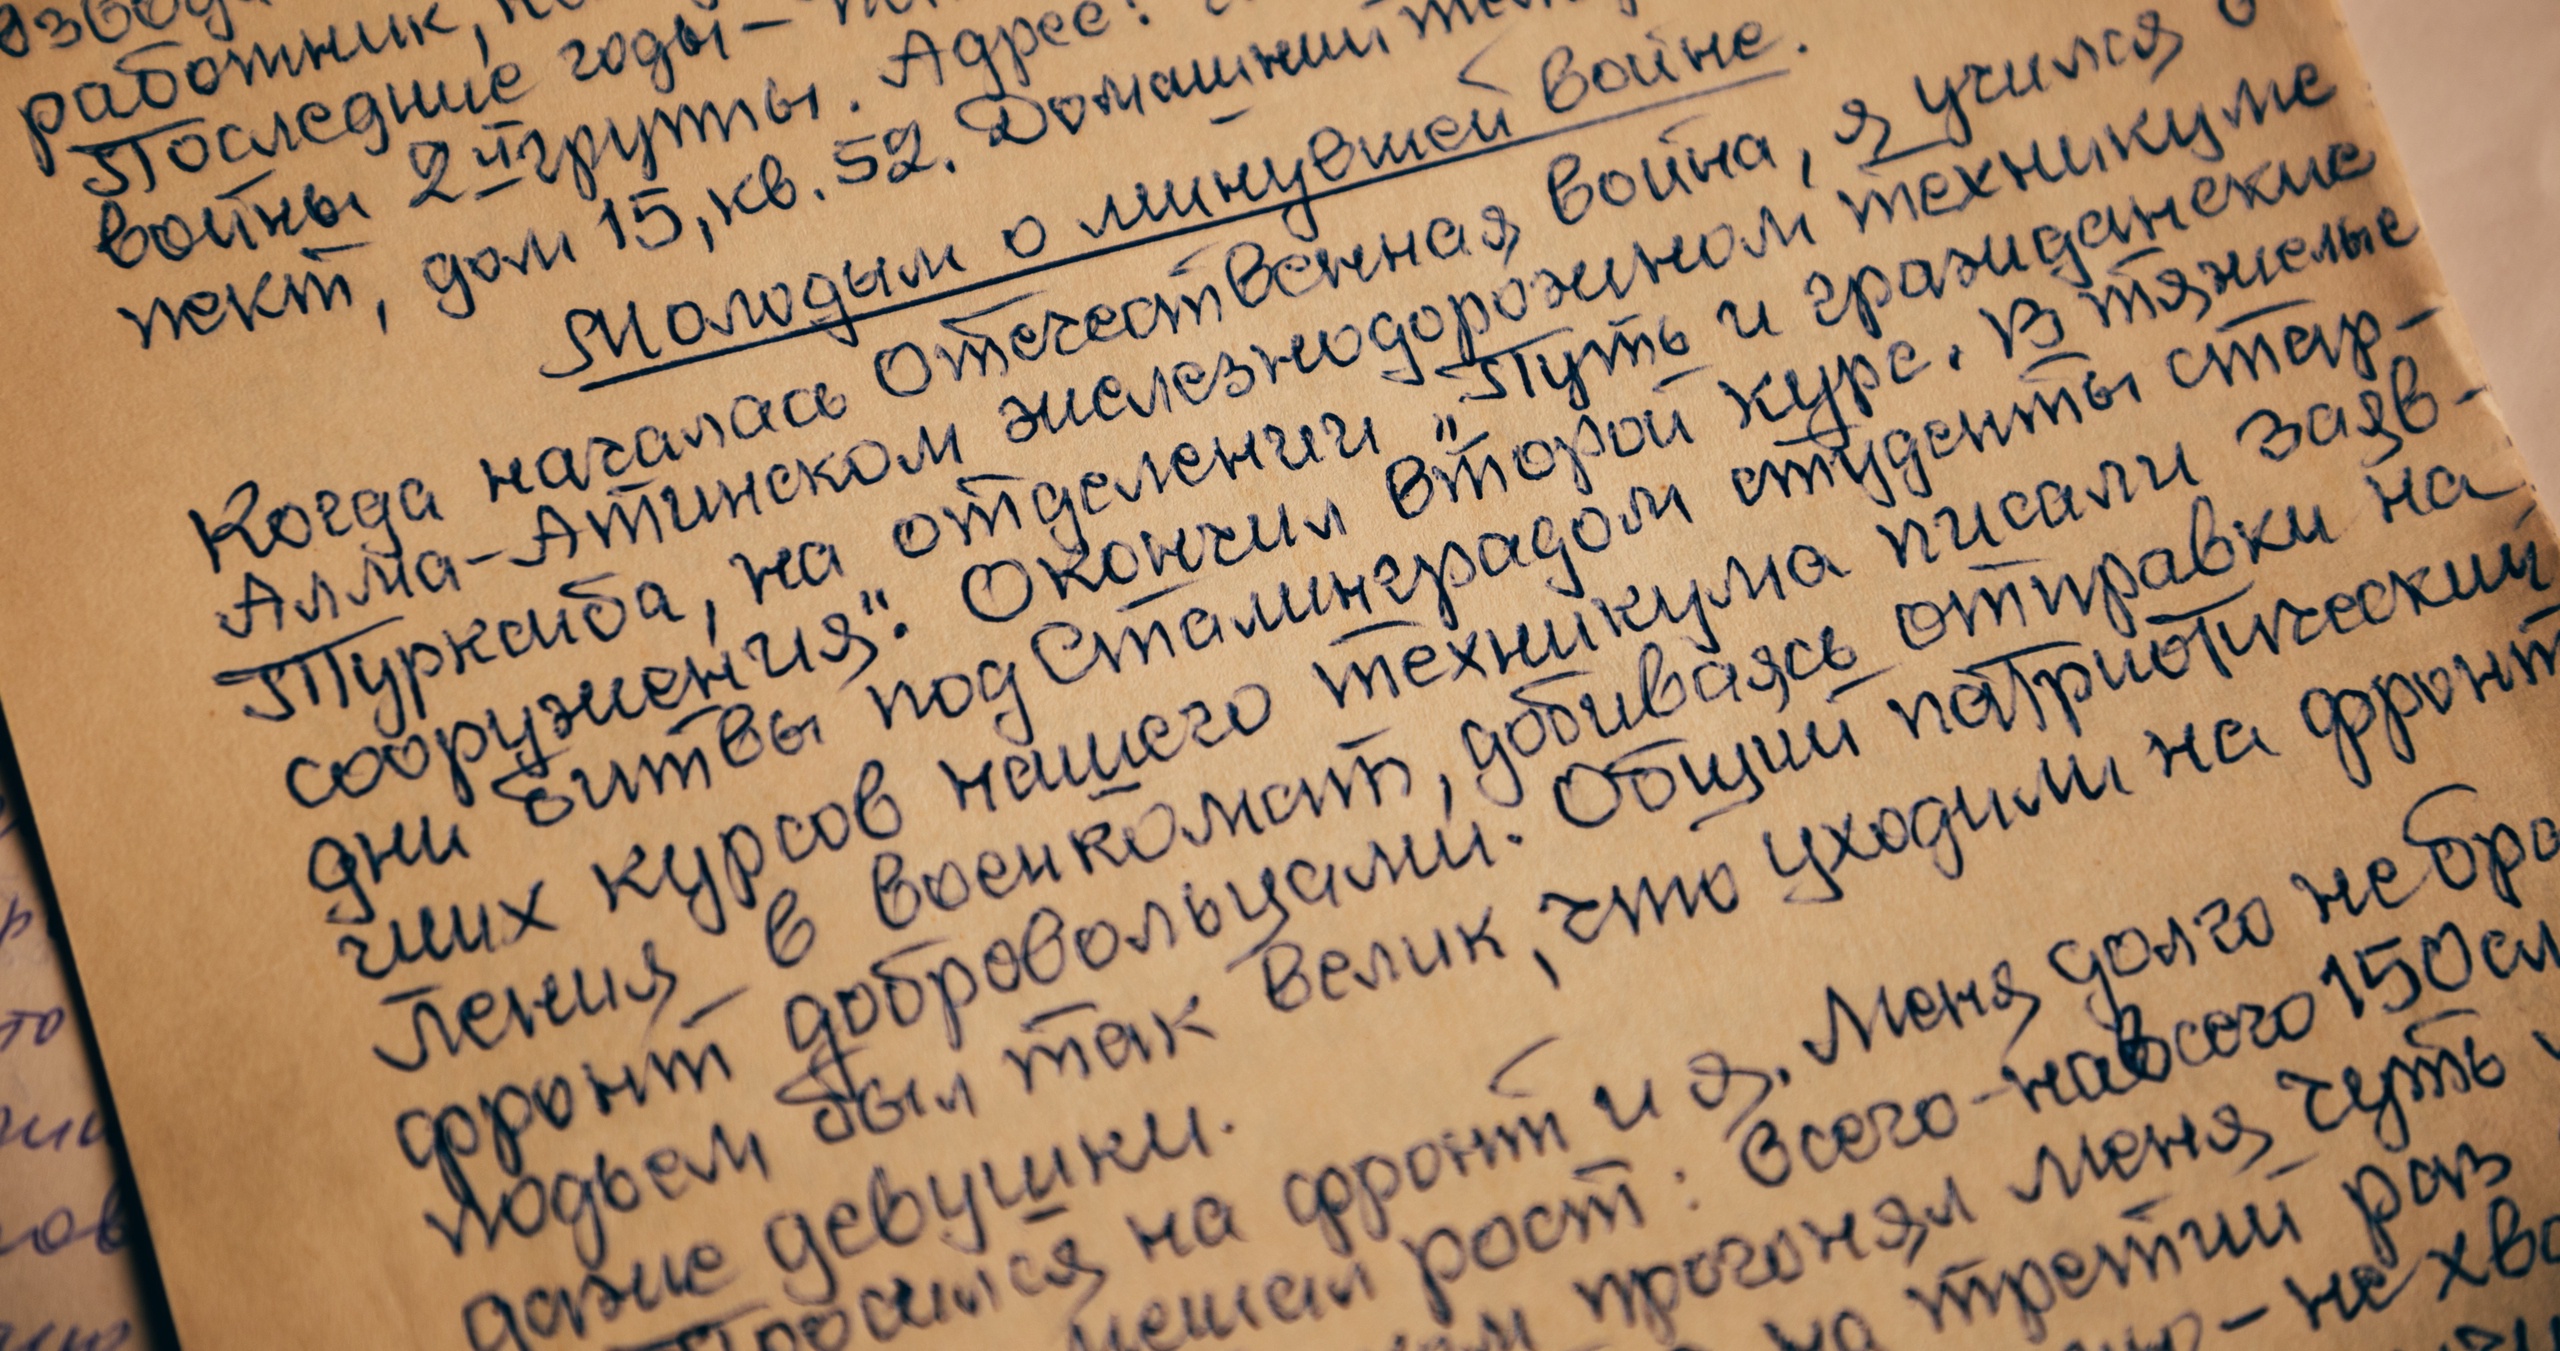 работник,
Последние годы –
войны 2й группы. Адрес:
пект, дом 15, кв. 52. Домашний
Молодым о минувшей войне.
Когда началась Отечественная война, я учился в
Алма-Атинском железнодорожном техникуме
Турксиба, на отделении „Путь и гражданские
сооружения". Окончил второй курс. В тяжелые
дни битвы под Сталинградом студенты стар-
ших курсов нашего техникума писали заяв-
ления в военкомат, добиваясь отправки на
фронт добровольцами. Общий патриотический
подъем был так велик, что уходили на фронт
даже девушки.
Просился на фронт и я. Меня долго не бра
мешал рост: всего-навсего 150 см
прогонял меня чуть
на третий раз
– не хва